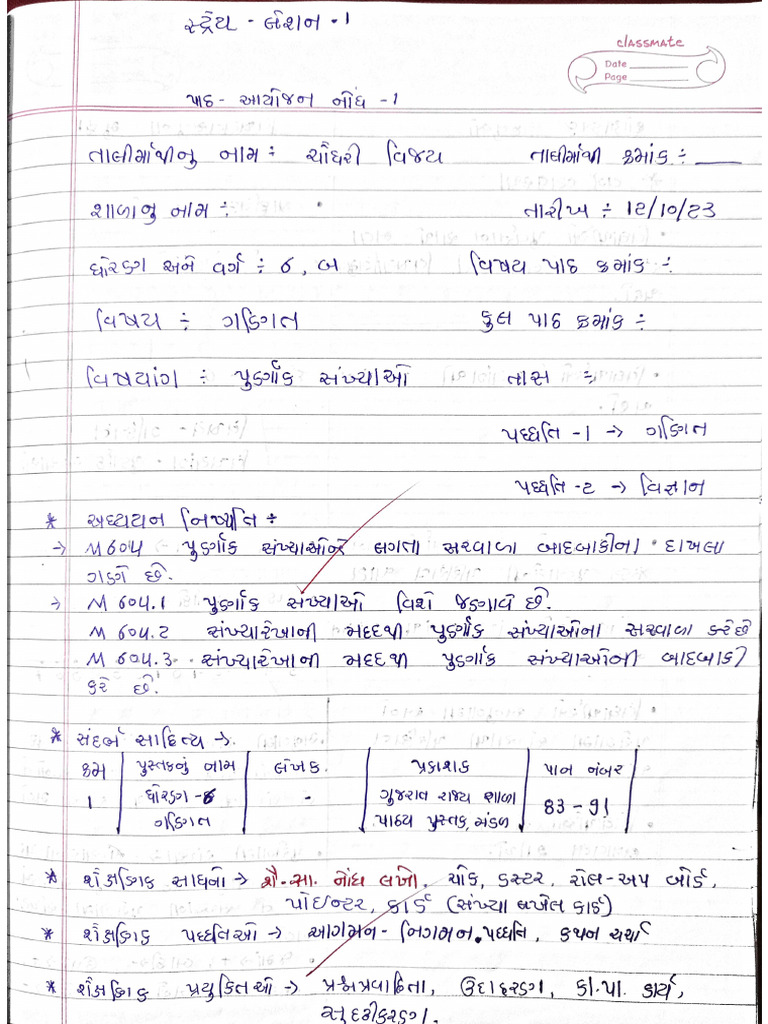 સ્ટ્રેય - લેશન - 1
classmate
Date
Page
પાઠ - આયોજન નોંધ - 1
તાલીમાર્થીનુ નામ ÷ ચૌધરી વિજય તાલીમાર્થી ક્રમાંક ÷
શાળાનુ નામ ÷ તારીખ ÷ 12/10/23
ધોરણ અને વર્ગ ÷ 6, બ વિષય પાઠ ક્રમાંક ÷
વિષય ÷ ગણિત કુલ પાઠ ક્રમાંક ÷
વિષયાંગ ÷ પુર્ણાંક સંખ્યાઓ તાસ ÷
પધ્ધતિ -1 → ગણિત
પધ્ધતિ -2 → વિજ્ઞાન
* અધ્યયન નિષ્પતિ ÷
→ M 604 પુર્ણાંક સંખ્યાઓને લગતા સરવાળા બાદબાકીના દાખલા
ગણે છે.
→ M 604.1 પુર્ણાંક સંખ્યાઓ વિશે જણાવે છે.
M 604.2 સંખ્યારેખાની મદદથી પુર્ણાંક સંખ્યાઓના સરવાળા કરે છે
M 604.3 સંખ્યારેખાની મદદથી પુર્ણાંક સંખ્યાઓની બાદબાકી
કરે છે.
* સંદર્ભ સાહિત્ય →
ક્રમ પુસ્તકનું નામ લેખક પ્રકાશક પાન નંબર
1 ધોરણ -6 - ગુજરાત રાજ્ય શાળા 83 - 91
ગણિત પાઠય પુસ્તક, મંડળ
* શૈક્ષણિક સાધનો → શૈ. સા. નોંધ લખો, ચોક, ડસ્ટર, રોલ-અપ બોર્ડ,
પોઇન્ટર, કાર્ડ (સંખ્યા લખેલ કાર્ડ)
* શૈક્ષણિક પધ્ધતિઓ → આગમન - નિગમન પધ્ધતિ, કથન ચર્ચા
* શૈક્ષણિક પ્રયુક્તિઓ → પ્રશ્નપ્રવાહિતા, ઉદાહરણ, કા.પા. કાર્ય,
સુદ્રઢીકરણ.